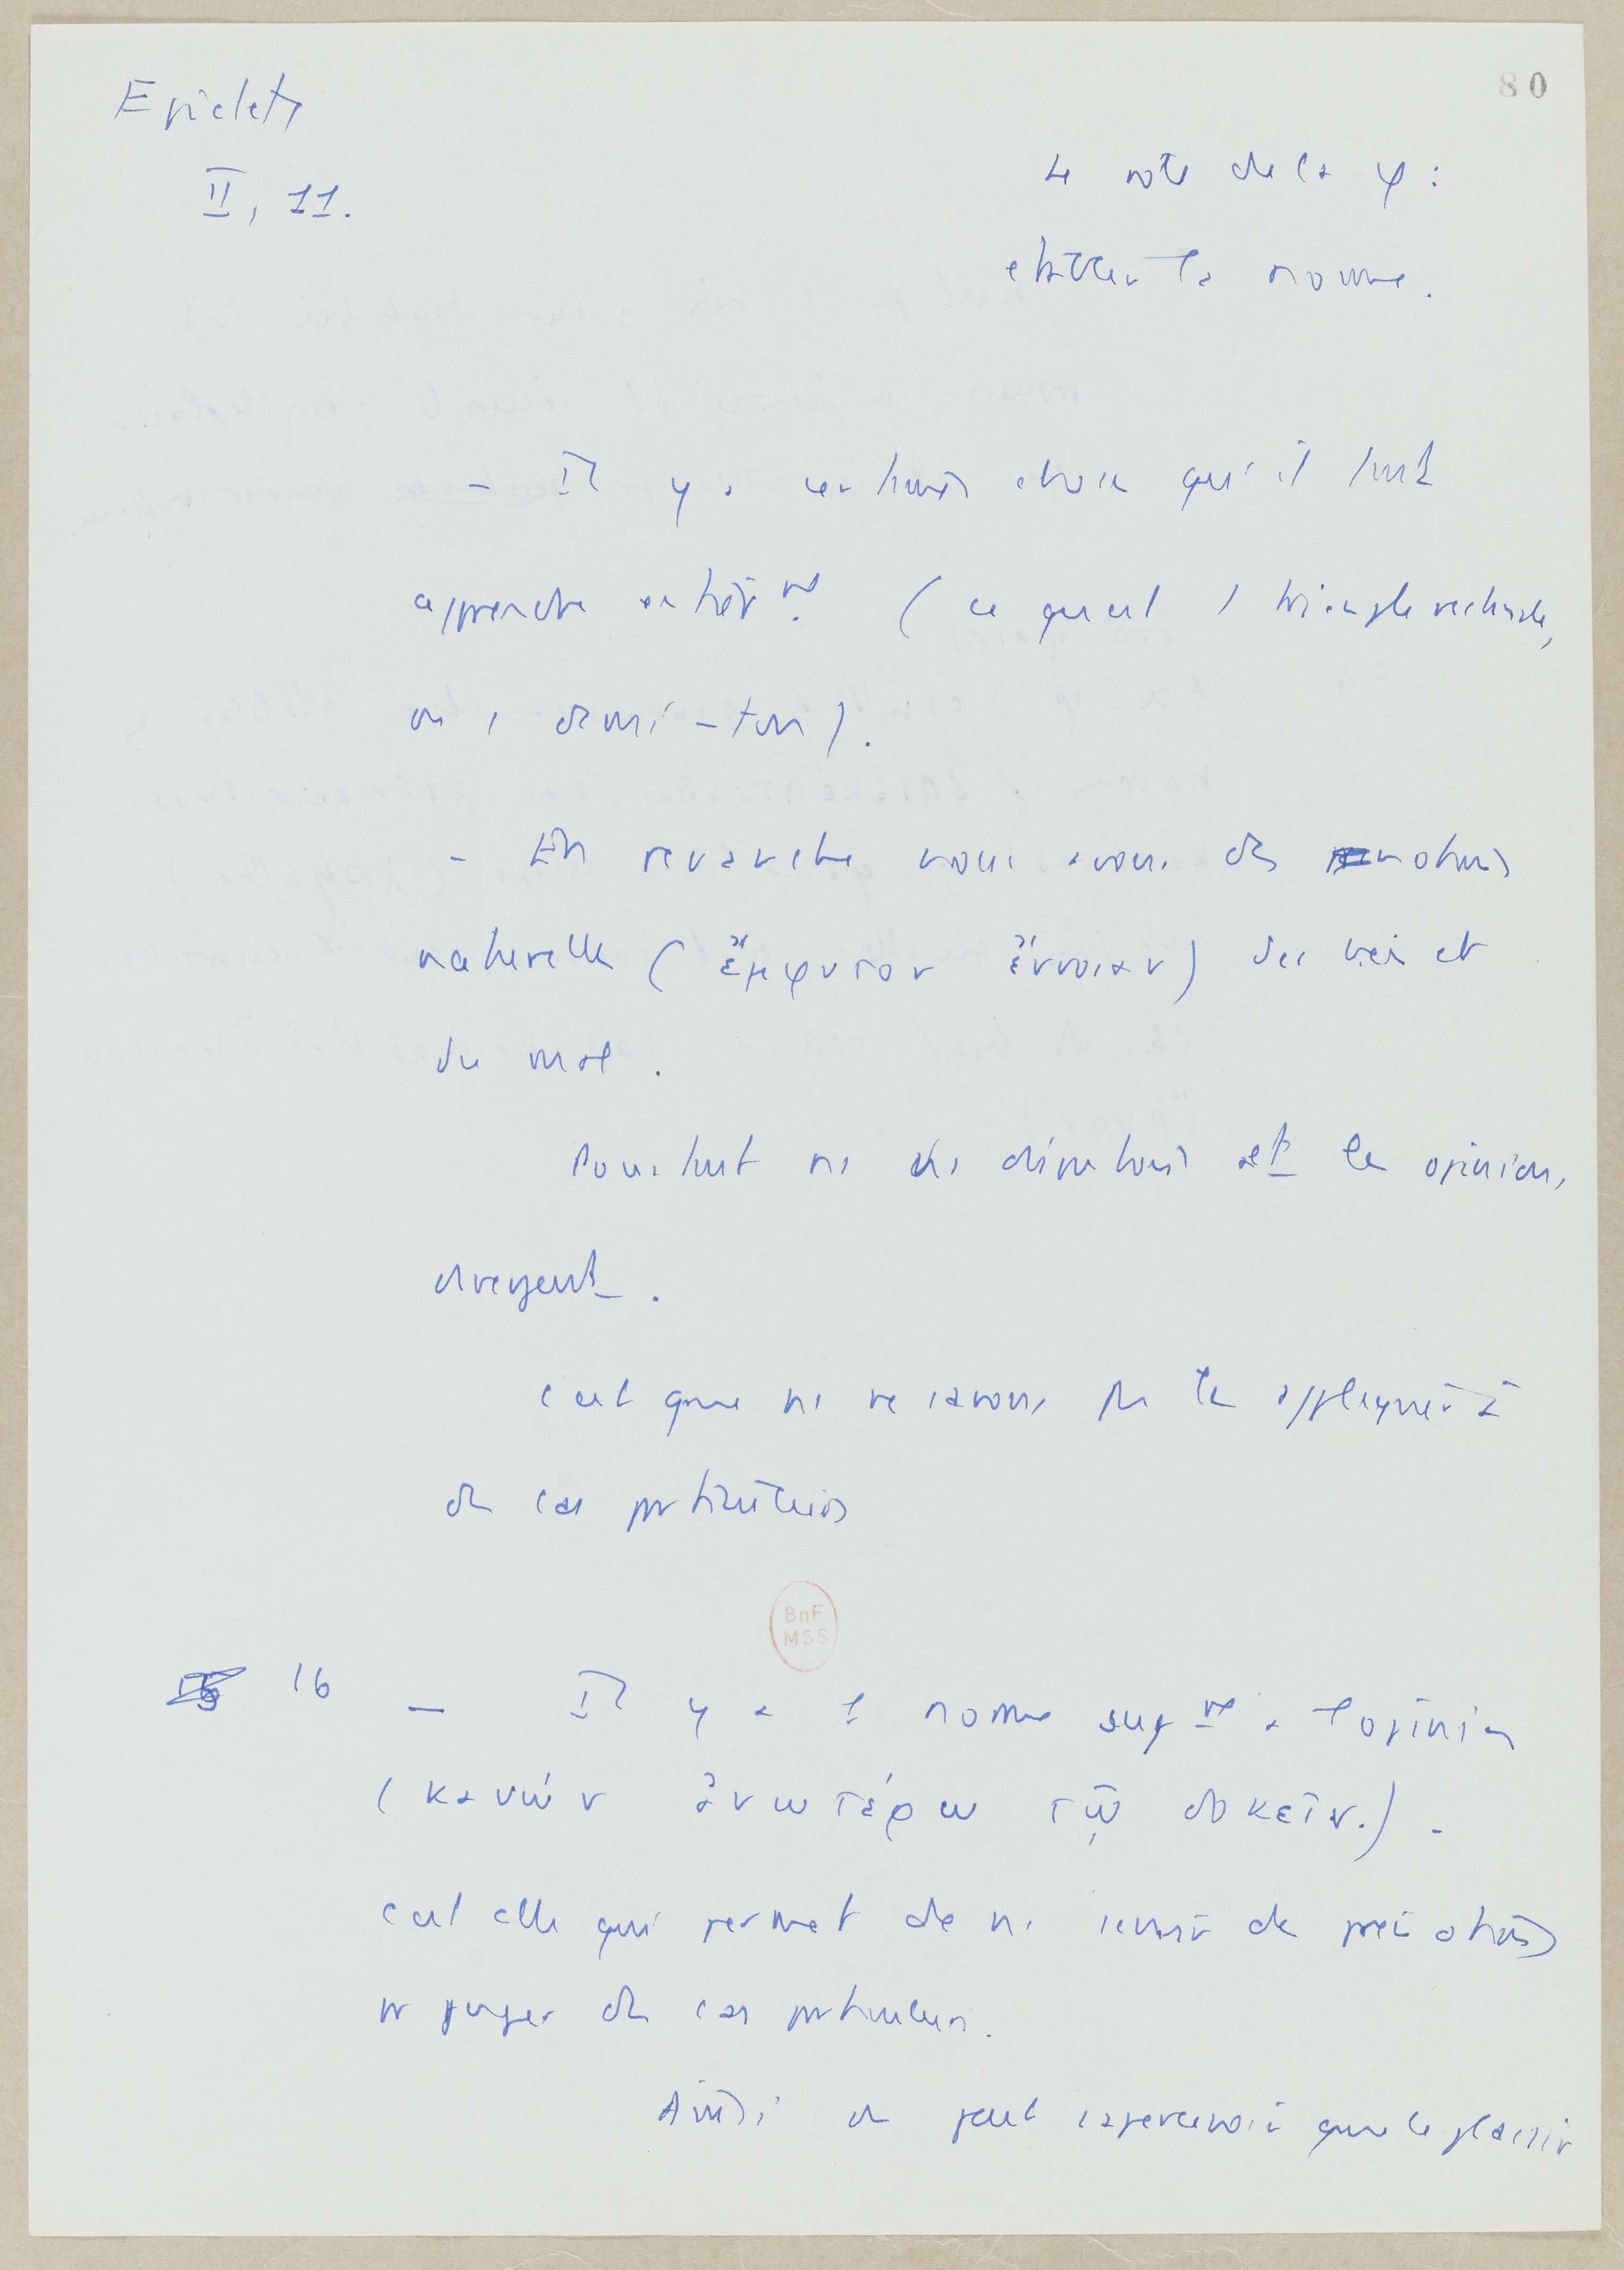 80
Epictete
II, 11.
Le role de la φ :
etablir la norme.
- Il y a certaines choses qu'il faut
apprendre entièrmt (ce qu'est 1 triangle rectangle,
ou 1 demi-ton).
- En revanche nous avons des notions
naturelles (ἔμφυτον ἔννοιαν) du bien et
du mal.
Pourtant ns ns disputons et les opinions
divergent.
C'est que ns ne savons pas les appliquer à
des cas particuliers
16 - Il y a 1 norme supre à l'opinion
(κανών ἀνωτέρω τῷ δοκεῖν.).
C'est elle qui permet de ns servir de prénotions
pr juger des cas particuliers.
Ainsi on peut s'apercevoir que le plaisir
BnF
MSS